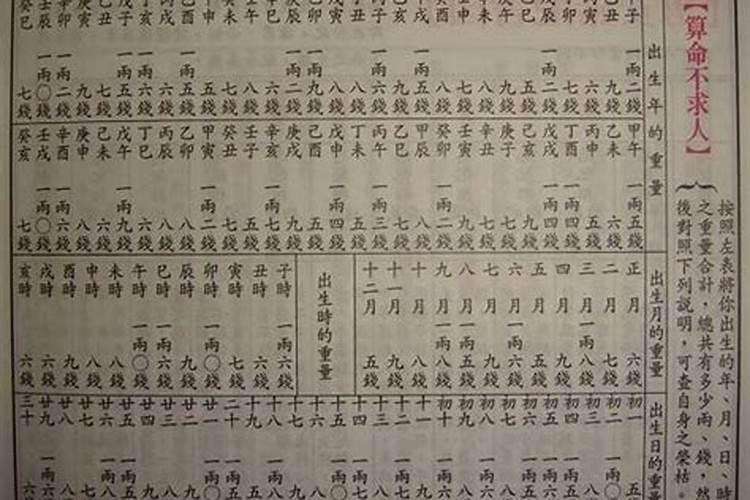 【算命不求人】
按照左表將你出生的年、月、日、時
之重量合計，總共有多少兩、錢，然
後對照下列說明，可查自身之榮枯
出生年的重量
甲子 一兩二錢
乙丑 九錢
丙寅 六錢
丁卯 七錢
戊辰 一兩二錢
己巳 五錢
庚午 九錢
辛未 八錢
壬申 七錢
癸酉 八錢
甲戌 一兩五錢
乙亥 九錢
丙子 一兩六錢
丁丑 八錢
戊寅 八錢
己卯 一兩九錢
庚辰 一兩二錢
辛巳 六錢
壬午 八錢
癸未 七錢
甲申 五錢
乙酉 一兩五錢
丙戌 六錢
丁亥 一兩六錢
戊子 一兩五錢
己丑 七錢
庚寅 九錢
辛卯 一兩二錢
壬辰 一兩〇錢
癸巳 七錢
甲午 一兩五錢
乙未 六錢
丙申 五錢
丁酉 一兩四錢
戊戌 一兩四錢
己亥 九錢
庚子 七錢
辛丑 七錢
壬寅 九錢
癸卯 一兩二錢
甲辰 八錢
乙巳 七錢
丙午 一兩三錢
丁未 五錢
戊申 一兩四錢
己酉 五錢
庚戌 九錢
辛亥 一兩七錢
壬子 五錢
癸丑 七錢
甲寅 一兩二錢
乙卯 八錢
丙辰 八錢
丁巳 六錢
戊午 一兩九錢
己未 六錢
庚申 八錢
辛酉 一兩六錢
壬戌 一兩〇錢
癸亥 七錢
出生月的重量
正月 六錢
二月 七錢
三月 一兩八錢
四月 九錢
五月 五錢
六月 一兩六錢
七月 九錢
八月 一兩五錢
九月 一兩八錢
十月 八錢
十一月 九錢
十二月 五錢
出生時的重量
子時 一兩六錢
丑時 六錢
寅時 七錢
卯時 一兩〇錢
辰時 九錢
巳時 一兩六錢
午時 一兩〇錢
未時 八錢
申時 八錢
酉時 九錢
戌時 六錢
亥時 六錢
出生日的重
初一
初二
初三
初四
初五
初六
初七
初八
初九
初十
十一
十二
十三
十四
十五
十六
十七
十八
十九
二十
廿一
廿二
廿三
廿四
廿五
廿六
廿七
廿八
廿九
三十